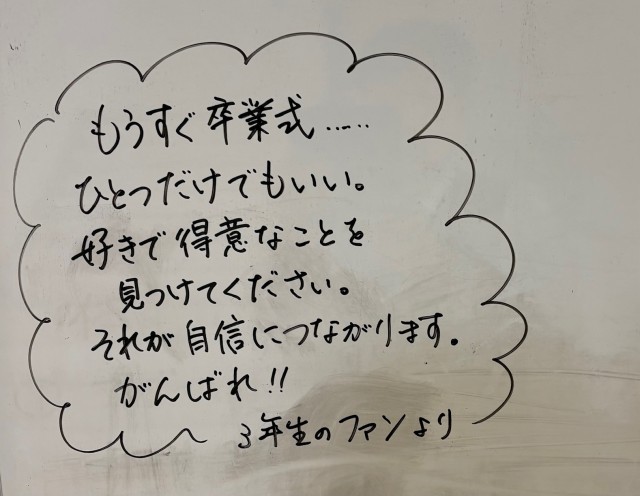 もうすぐ卒業式……
ひとつだけでもいい。
好きで得意なことを
見つけてください。
それが自信につながります。
がんばれ!!
3年生のファンより